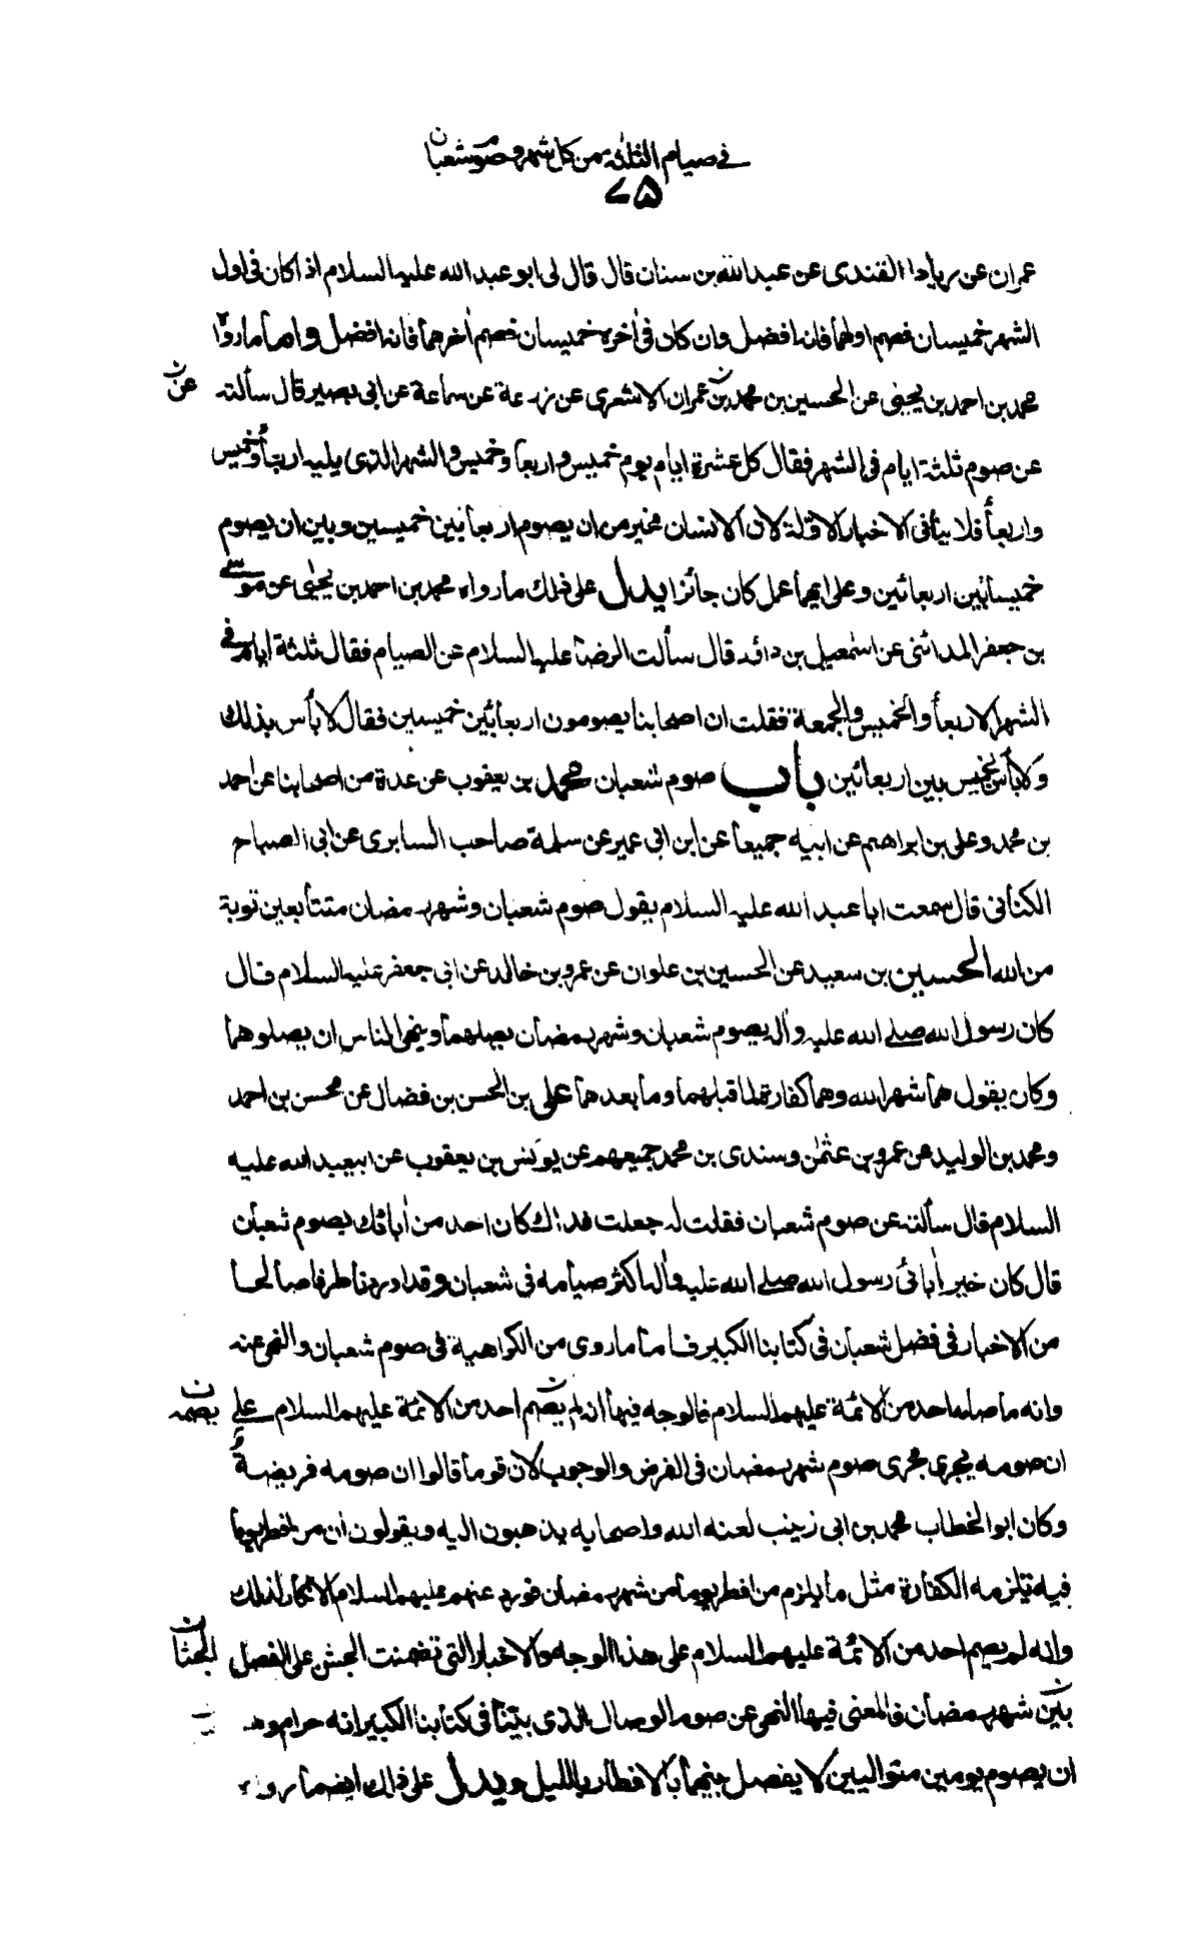 في صيام الثلاثة من كل شهر وصوم شعبان
٧٥
عمران عن زياد القندى عن عبدالله بن سنان قال قال لى ابو عبد الله عليه السلام اذا كان فى اول
الشهر خميسان فصم اولهما فانه افضل وان كان فى اخره خميسان فصم اخرهما فانه افضل واما ما رواه
محمد بن احمد بن يحيى عن الحسين بن محمد بن عمران الاشعرى عن زرعة عن سماعة عن ابى بصير قال سألته
عن ن
عن صوم ثلثة ايام فى الشهر فقال كل عشرة ايام يوم خميس واربعا وخميس والشهر الذى يليه اربعأ وخميس
واربعأ فلا ينافى الاخبار الاولة لان الانسان مخير من ان يصوم اربعا بين خميسين وبين ان يصوم
خميسا بين اربعائين وعلى ايهما عمل كان جائزا يدل على ذلك ما رواه محمد بن احمد بن يحيى عن موسى
بن جعفر المدائنى عن اسمعيل بن داؤد قال سألت الرضا عليه السلام عن الصيام فقال ثلثة ايام فى
الشهر الاربعأ والخميس والجمعة فقلت ان اصحابنا يصومون اربعا بين خميسين فقال لا بأس بذلك
ولا بأس بخميس بين اربعائين باب صوم شعبان محمد بن يعقوب عن عدة من اصحابنا عن احمد
بن محمد وعلى بن ابراهيم عن ابيه جميعا عن ابن ابى عمير عن سلمة صاحب السابرى عن ابى الصباح
الكنانى قال سمعت ابا عبد الله عليه السلام يقول صوم شعبان وشهر رمضان متتابعين توبة
من الله الحسين بن سعيد عن الحسين بن علوان عن عمرو بن خالد عن ابى جعفر عليه السلام قال
كان رسول الله صلى الله عليه وآله يصوم شعبان وشهر رمضان يصلهما وينهى الناس ان يصلوهما
وكان يقول هما شهر الله وهما كفارة لما قبلهما وما بعدهما على بن الحسن بن فضال عن محسن بن احمد
ومحمد بن الوليد عن عمرو بن عثمن وسندى بن محمد جميعهم عن يونس بن يعقوب عن ابيعبد الله عليه
السلام قال سألته عن صوم شعبان فقلت له جعلت فداك كان احد من آبائك يصوم شعبان
قال كان خير آبائى رسول الله صلى الله عليه وآله اكثر صيامه فى شعبان وقد اوردنا طرفا صالحا
من الاخبار فى فضل شعبان فى كتابنا الكبير فاما ما روى من الكراهية فى صوم شعبان والنهى عنه
وانه ما صامه احد من الائمة عليهم السلام فالوجه فيها انه لم يصم احد من الائمة عليهم السلام على
يصمه ن
ان صومه يجرى مجرى صوم شهر رمضان فى الفرض والوجوب لان قوما قالوا ان صومه فريضة
وكان ابو الخطاب محمد بن ابى زينب لعنه الله واصحابه يذهبون اليه ويقولون ان من افطر يوما
فيه يلزمه الكفارة مثل ما يلزم من افطر يوما من شهر رمضان فورد عنهم عليهم السلام الانكار لذلك
وانه لم يصم احد من الائمة عليهم السلام على هذا الوجه والاخبار التى تضمنت الحث على الفصل
بين شهر رمضان فالمعنى فيها النهى عن صوم الوصال الذى بينا فى كتابنا الكبير انه حرام وهو
ان يصوم يومين متواليين لا يفصل بينهما بالافطار بالليل ويدل على ذلك ايضا ما رواه